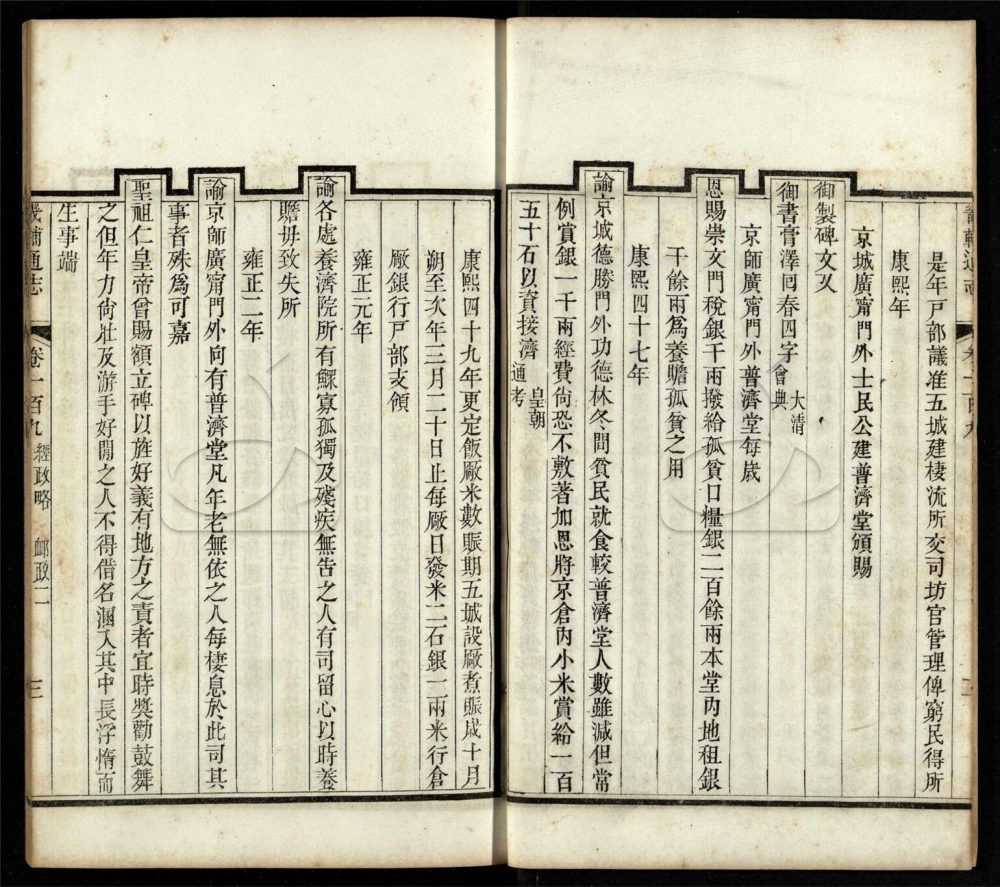 是年戸部議准五城建棲流所交司坊官管理俾窮民得所
康熙年
京城廣甯門外士民公建普濟堂頒賜
御製碑文又
御書膏澤回春四字大清會典
京師廣甯門外普濟堂每歲
恩賜崇文門稅銀千兩撥給孤貧口糧銀二百餘兩本堂內地租銀
千餘兩爲養贍孤貧之用
康熙四十七年
諭京城德勝門外功德林冬間貧民就食較普濟堂人數雖減但常
例賞銀一千兩經費尙恐不敷著加恩將京倉內小米賞給一百
五十石以資接濟皇朝通考
康熙四十九年更定飯厰米數賑期五城設厰煮賑成十月
朔至次年三月二十日止每厰日發米二石銀一兩米行倉
厰銀行戸部支領
雍正元年
諭各處養濟院所有鰥寡孤獨及殘疾無告之人有司留心以時養
贍毋致失所
雍正二年
諭京師廣甯門外向有普濟堂凡年老無依之人每棲息於此司其
事者殊爲可嘉
聖祖仁皇帝曾賜額立碑以旌好義有地方之責者宜時奬勸鼓舞
之但年力尙壯及游手好閒之人不得借名溷入其中長浮惰而
生事端
畿輔通志 卷一百九 經政略 卹政二 三